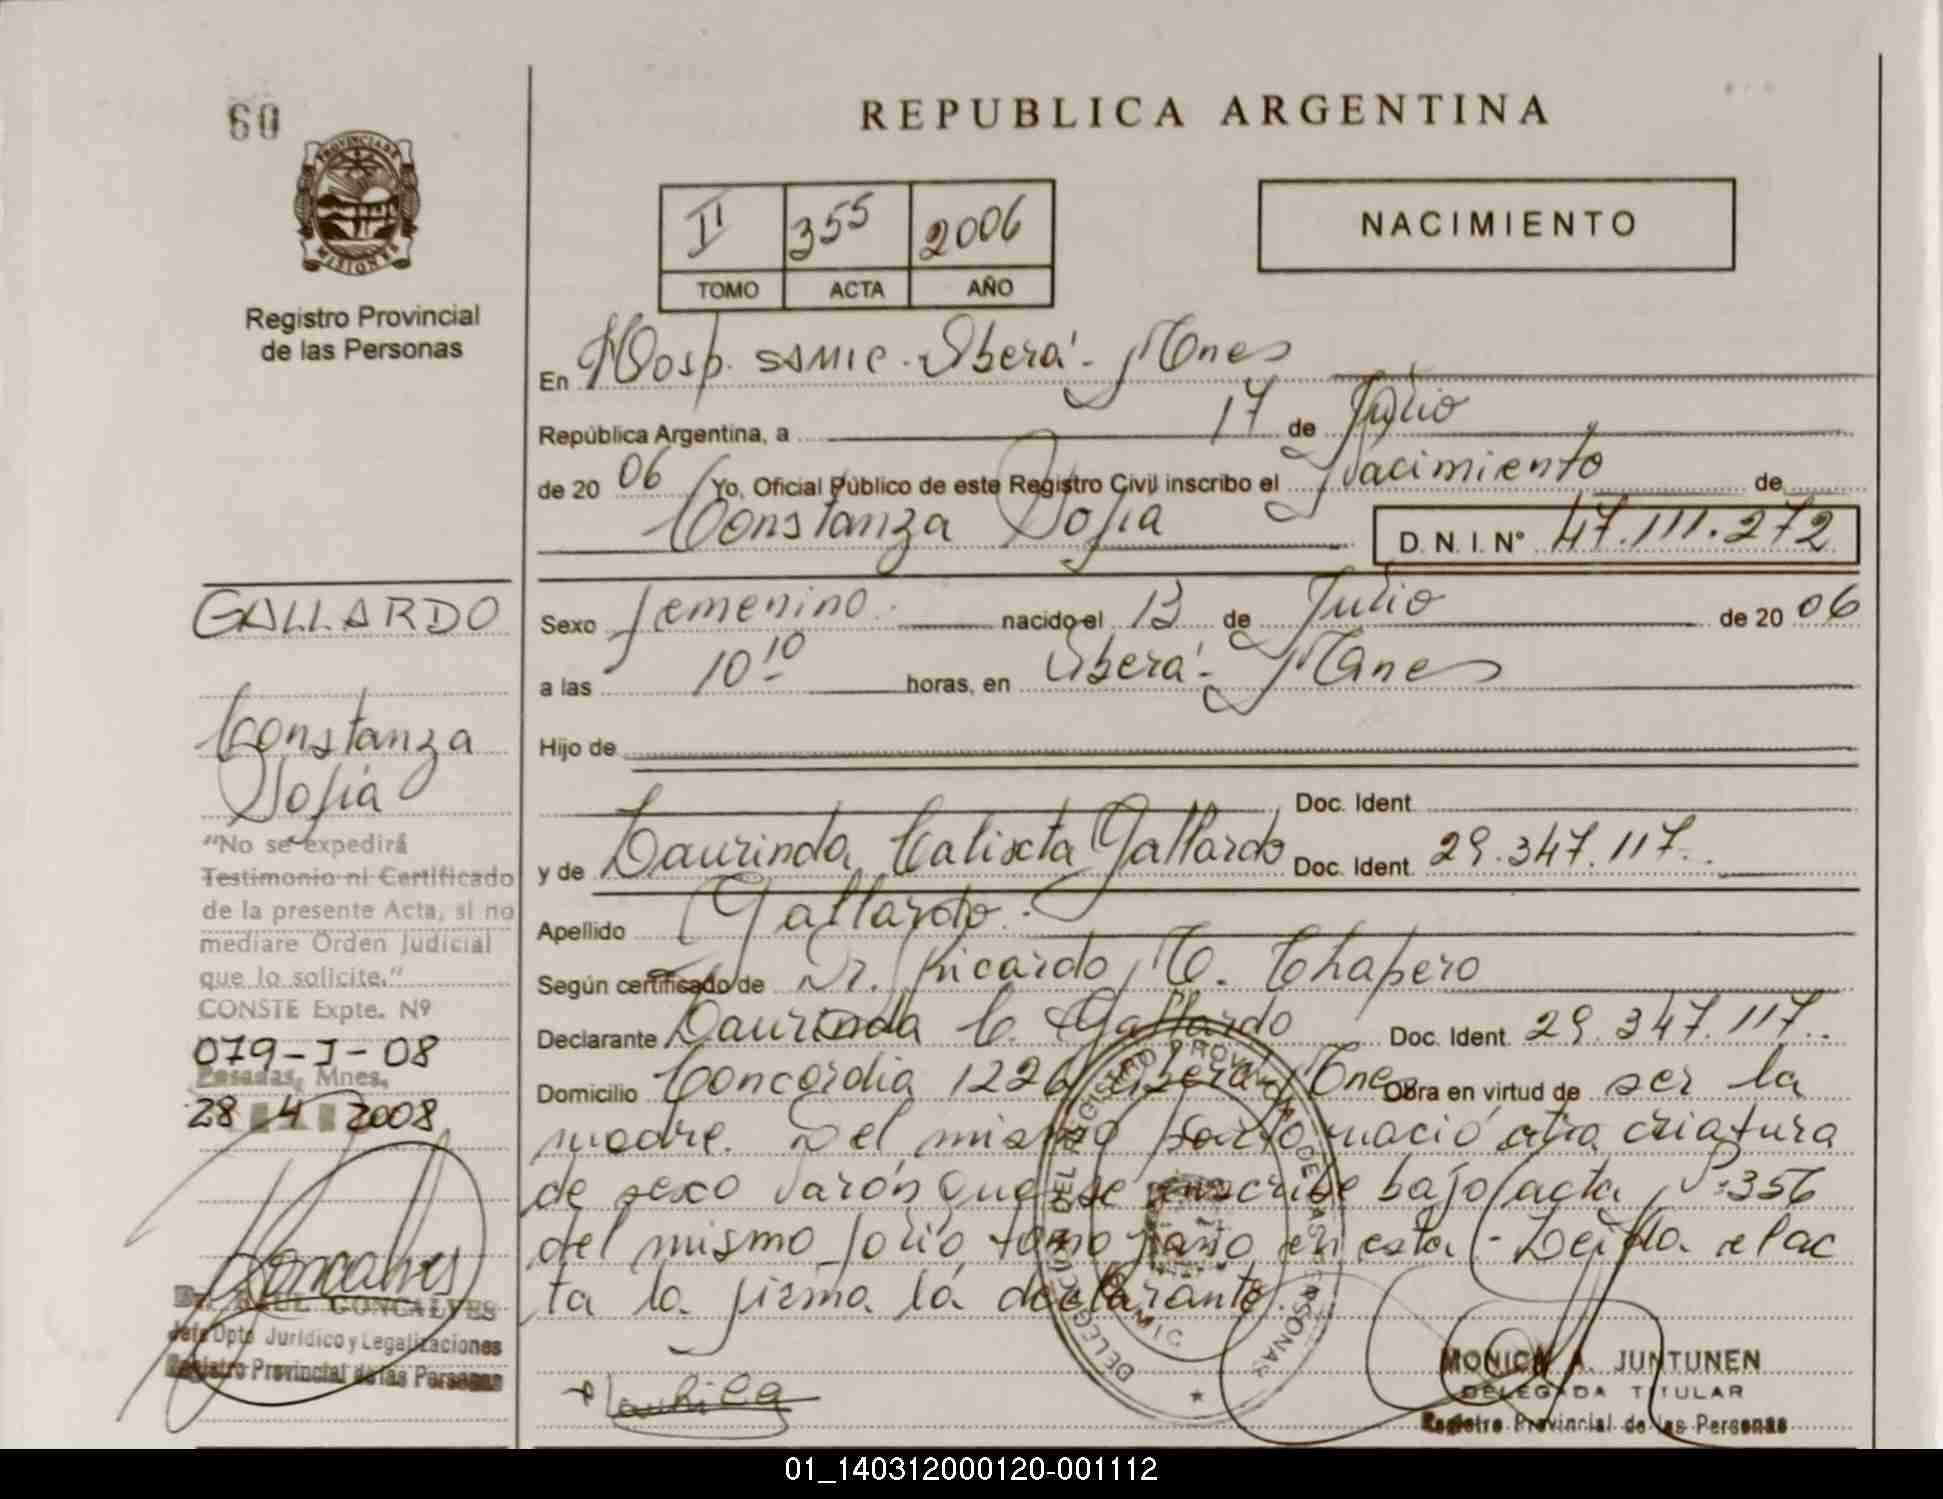 60
PROVINCIA DE
MISIONES
Registro Provincial
de las Personas
REPUBLICA ARGENTINA
II 355 2006
TOMO ACTA AÑO
NACIMIENTO
En Hosp. SAMIC - Oberá - Mnes
República Argentina, a 17 de Julio
de 20 06 Yo, Oficial Público de este Registro Civil inscribo el Nacimiento de
Constanza Sofia D. N. I. Nº 47.111.272
Sexo femenino. nacido el 13 de Julio de 20 06
a las 10 10 horas, en Oberá - Mnes
Hijo de
Doc. Ident.
y de Laurinda Calixta Gallardo Doc. Ident. 29.347.117.
Apellido Gallardo.
Según certificado de Dr. Ricardo M. Chapero
Declarante Laurinda C. Gallardo Doc. Ident. 29.347.117.
Domicilio Concordia 1226 Oberá - Mnes Obra en virtud de ser la
madre. Del mismo parto nació otra criatura
de sexo varón que se inscribe bajo acta Nº 356
del mismo folio tomo y año en esta - Leída el ac
ta la firma la declarante.
GALLARDO
Constanza
Sofia
"No se expedirá
Testimonio ni Certificado
de la presente Acta, si no
mediare Orden Judicial
que lo solicite."
CONSTE Expte. Nº
079-J-08
Posadas, Mnes,
28 4 2008
Goncalves
Dr. RAUL GONCALVES
Jefe Dpto Jurídico y Legalizaciones
Registro Provincial de las Personas
DELEGACION DEL REGISTRO PROVINCIAL DE LAS PERSONAS
SAMIC
MONICA A. JUNTUNEN
DELEGADA TITULAR
Registro Provincial de las Personas
01_140312000120-001112